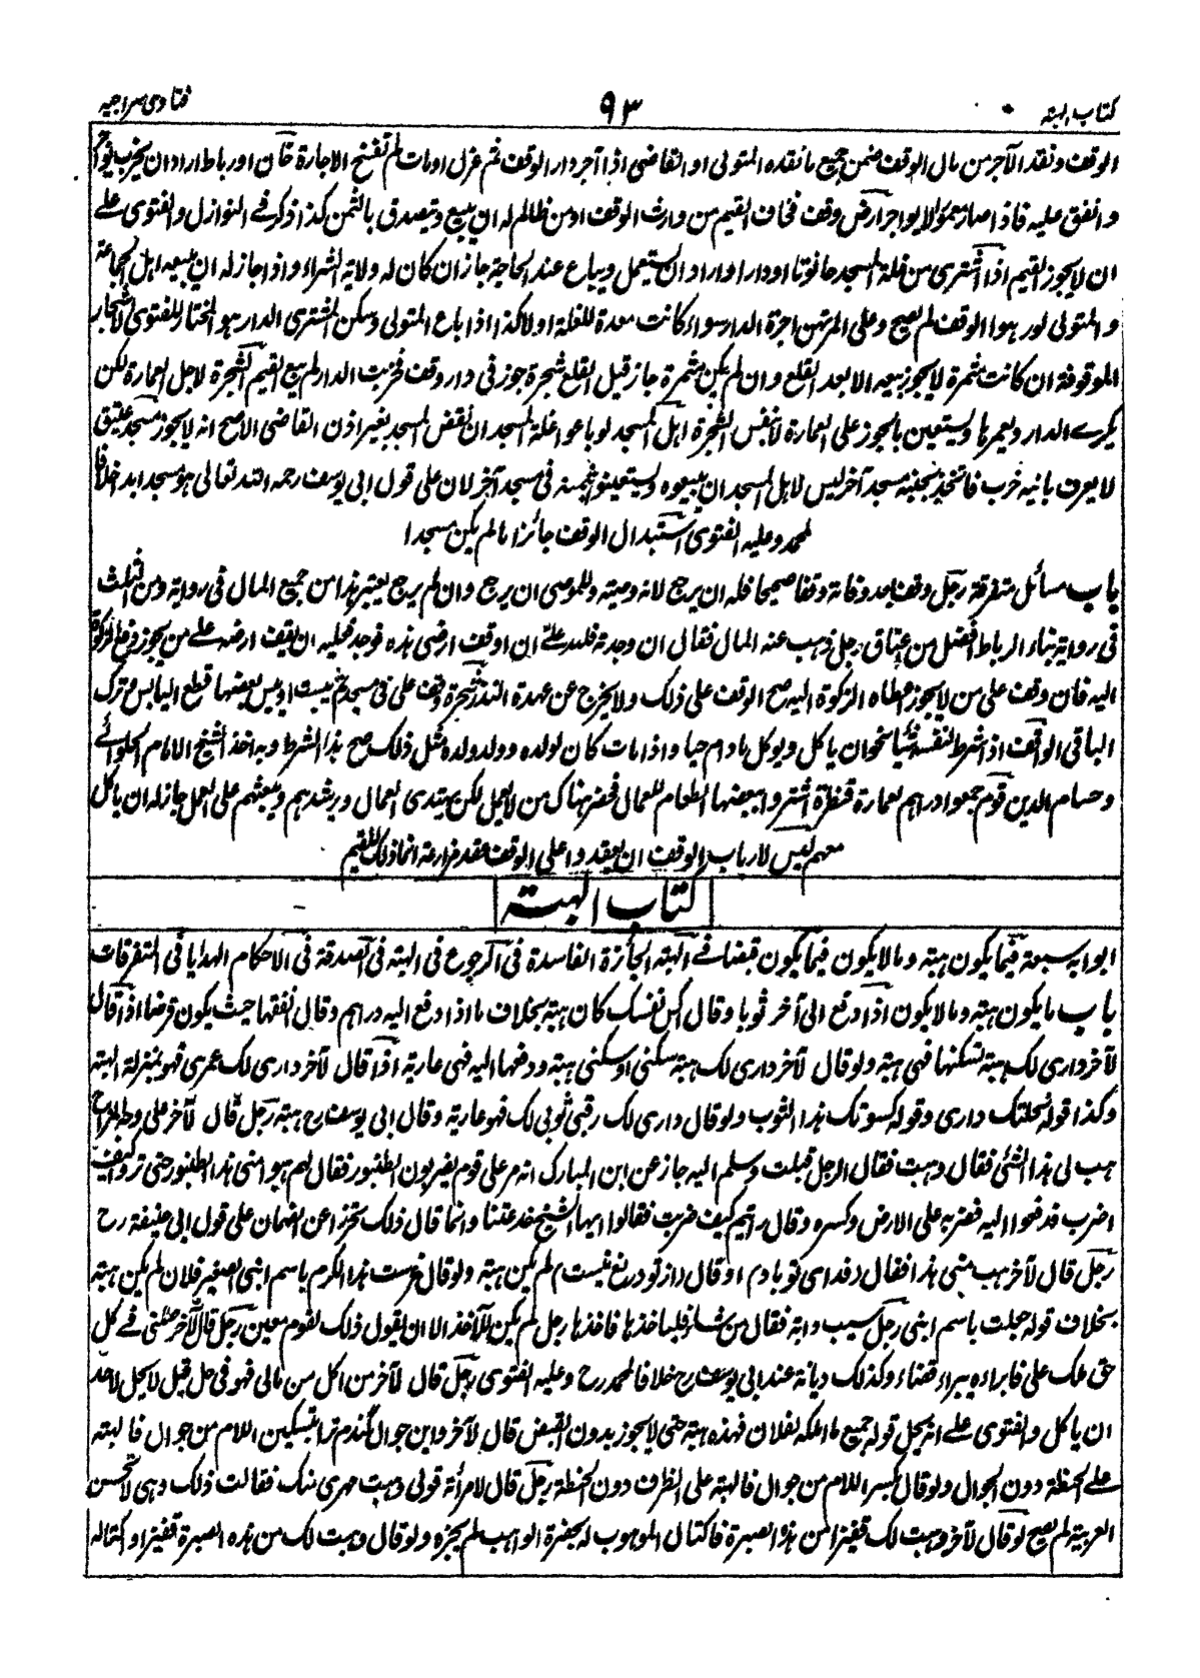 كتاب الهبة ٩٣ فتاوى سراجيه
الوقف ونقد الآجر من مال الوقف ضمن جميع ما نقده المتولى او القاضى اذا آجر دار الوقف ثم عزل او مات لم تفسخ الاجارة خان او رباط اراد ان يخرب يواجر
وانفق عليه فاذا صار معمورا لا يواجر ارض وقف فخاف القيم من وارث الوقف او من ظالم له ان يبيع ويتصدق بالثمن كذا ذكر فى النوازل والفتوى على
ان لا يجوز القيم اذا اشترى من غلة المسجد حانوتا او دارا واراد ان يستعمل ويباع عند الحاجة جاز ان كان له ولاية الشراء واذا جاز له ان يبيعه اهل الجماعة
والمتولى لو رهنوا الوقف لم يصح وعلى المرتهن اجرة الدار سواء كانت معدة للغلة او لا كذا اذا باع المتولى وسكن المشترى الدار هو المختار للفتوى الاشجار
الموقوفة ان كانت مثمرة لا يجوز بيعه الا بعد القلع وان لم يكن مثمرة جاز قبل القلع شجرة جوز فى دار وقف فخربت الدار لم يبع القيم الشجرة لاجل العمارة لكن
يكرے الدار ويعمرها ويستعين بالجوز على العمارة لا بنفس الشجرة اهل المسجد لو باعوا غلة المسجد ان نقض المسجد بغير اذن القاضى الاصح انه لا يجوز مسجد عتيق
لا يعرف بانيه خرب فاتخذ بجنبه مسجد آخر ليس لاهل المسجد ان يبيعوه ويستعينوا بثمنه فى مسجد آخر لان على قول ابى يوسف رحمه الله تعالى هو مسجد ابدا خلافا
لمحمد وعليه الفتوى استبدال الوقف جائز ما لم يكن مسجدا
باب مسائل متفرقة رجل وقف بعد وفاته وقفا صحيحا فله ان يرجع لانه وصية وللموصى ان يرجع وان لم يرجع يعتبر هذا من جميع المال فى رواية ومن الثلث
فى رواية بناء الرباط افضل من عتاق رجل ذهب عنه المال فقال ان وجدته فلله على ان اوقف ارضى هذه فوجد فعليه ان يقف ارضه على من يجوز دفع الزكوة
اليه فان وقف على من لا يجوز اعطاه الزكوة اليه صح الوقف على ذلك ولا يخرج عن عهدة النذر شجرة وقف على فى مسجد يبست او يبس بعضها قطع اليابس وترك
الباقى الواقف اذا شرط لنفسه شيئا نحو ان ياكل ويوكل مادام حيا واذا مات كان لولده وولد ولده مثل ذلك صح هذا الشرط وبه اخذ الشيخ الامام الحلوائے
وحسام الدين قوم جمعوا دراهم لعمارة قنطرة اشتروا ببعضها الطعام للعمال فحضر هناك من لا يعمل لكن يهتدى العمال ويرشدهم ويبعثهم على العمل جاز له ان ياكل
معهم ليس لارباب الوقف ان يعقدوا على الوقف عقد مزارعة انما ذلك للقيم
كتاب الهبة
ابوابه سبعة فيما يكون هبة وما لا يكون فيما يكون قبضا فے الهبة الجائزة الفاسدة فى الرجوع فى الهبة فى الصدقة فى الاحكام الهدايا فى المتفرقات
باب ما يكون هبة وما لا يكون اذا دفع الى آخر ثوبا وقال اكس نفسك كان هبة بخلاف ما اذا دفع اليه دراهم وقال انفقها حيث يكون قرضا اذا قال
لآخر دارى لك هبة تسكنها فهى هبة ولو قال لآخر دارى لك هبة سكنى او سكنى هبة ودفعها اليه فهى عارية اذا قال لآخر دارى لك عمرى فهو بمنزلة الهبة
وكذا قوله نحلتك دارى وقوله كسوتك هذا الثوب ولو قال دارى لك رقبى ثوبى لك فهو عارية وقال ابى يوسف رح هبة رجل قال لآخر على وجه المزاح
هب لى هذا الشئ فقال وهبت فقال الرجل قبلت وسلم اليه جاز عن ابن المبارك انه مر على قوم يضربون الطنبور فقال لهم هبوا منى هذا الطنبور حتى تروا كيف
اضرب فدفعوا اليه فضربه على الارض وكسره وقال رايتم كيف ضربت فقالوا ايها الشيخ خدعتنا وانما قال ذلك تحرزا عن الضمان على قول ابى حنيفة رح
رجل قال لآخر هب منى هذا فقال رفداى تو بادم او قال داز تو دريغ نيست م لم يكن هبة ولو قال غرست هذا الكرم باسم ابنى الصغير فلان لم يكن هبة
بخلاف قوله جعلت باسم ابنى رجل سيب دابة فقال من شاء فلياخذها فاخذها رجل لم يكن للآخذ الا ان يقول ذلك لقوم معين رجل قال لآخر حللنى فے كل
حق لك على فابراءه يبراء قضاء وكذلك ديانة عند ابى يوسف رح خلافا لمحمد رح وعليه الفتوى رجل قال لآخر من اكل من مالى فهو فى حل قيل لا يحل لاحد
ان ياكل والفتوى علے انه يحل قوله جميع ما املكه لفلان فهذه هبة حتى لا يجوز بدون القبض قال لآخر واين جوال گندم ترا بتسكين اللام من جوال فالهبة
علے الحنطة دون الجوال ولو قال بكسر اللام من جوال فالهبة على الظرف دون الحنطة رجل قال لامرأته قولى وهبت مهرى منك فقالت ذلك وهى لا تحسن
العربية لم يصح لو قال لآخر وهبت لك قفيزا من هذا الصبرة فاكتال الموهوب له بحضرة الواهب لم يجزه ولو قال وهبت لك من هذه الصبرة قفيزا واكتاله